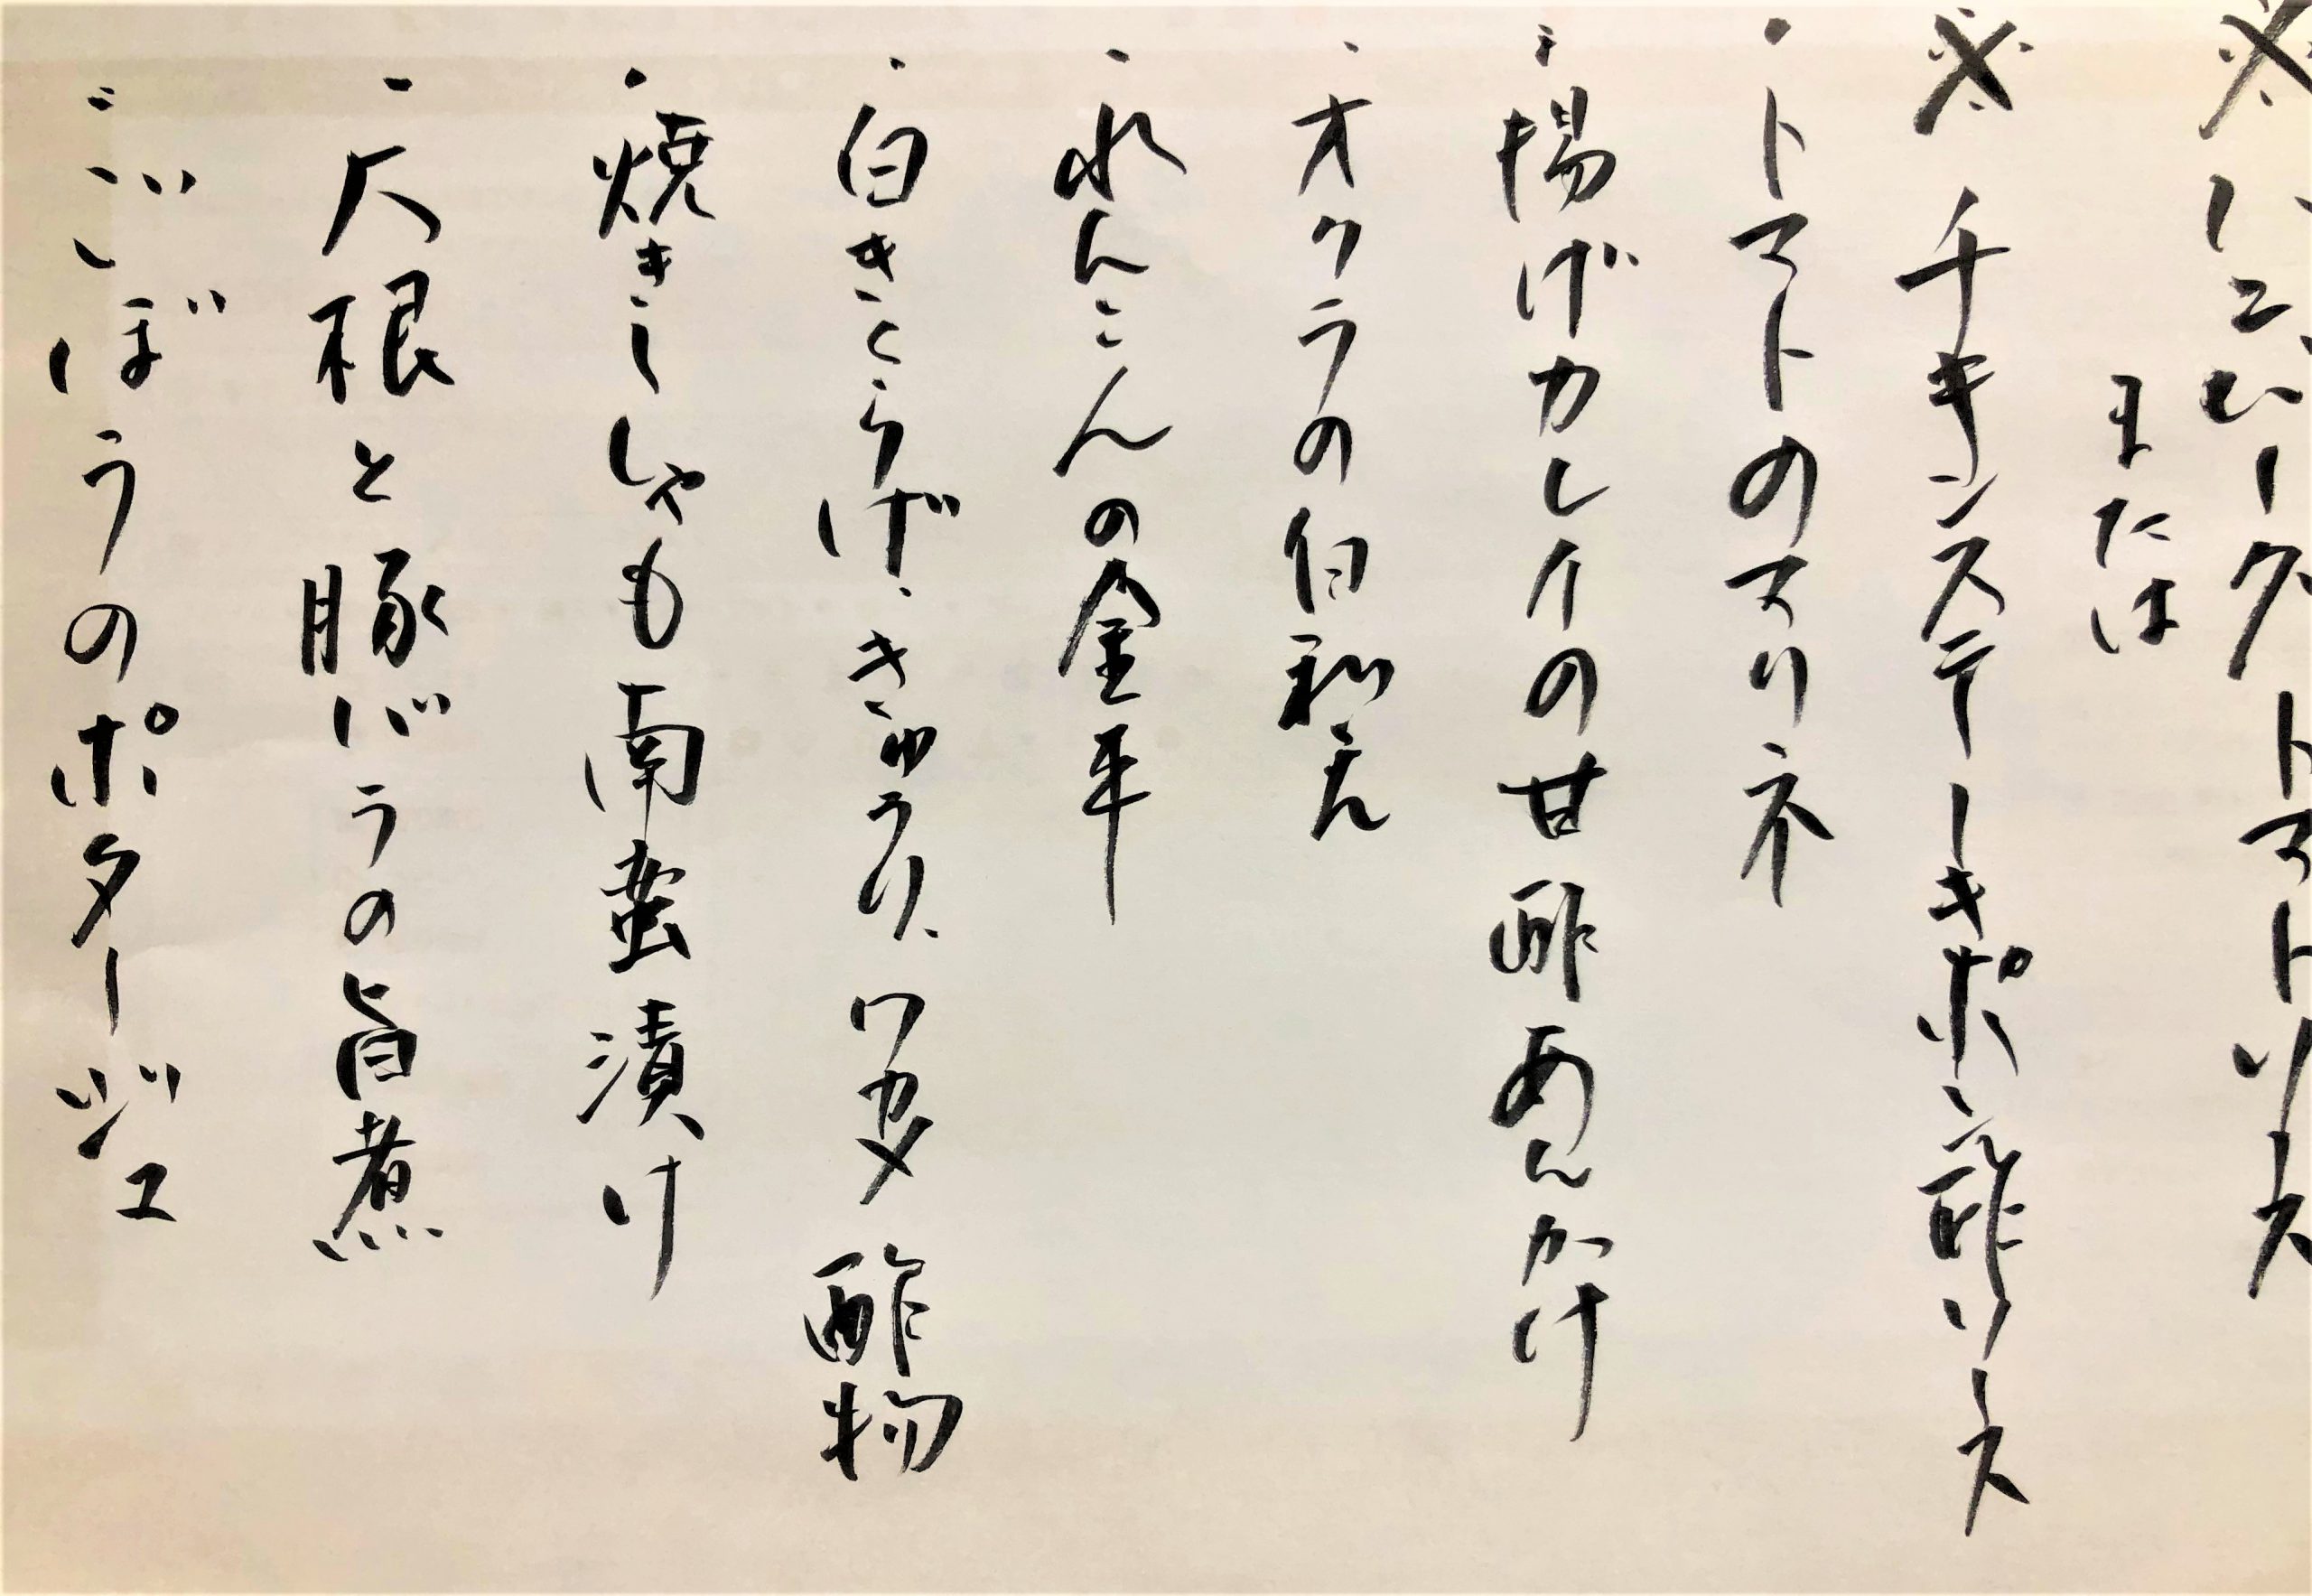 ※ハンバーグトマトソース
または
※チキンステーキポン酢ソース
・トマトのマリネ
・揚げカレイの甘酢あんかけ
・オクラの白和え
・れんこんの金平
・白きくらげ、きゅうり、ワカメ酢物
・焼きししゃも南蛮漬け
・大根と豚バラの旨煮
・ごぼうのポタージュ